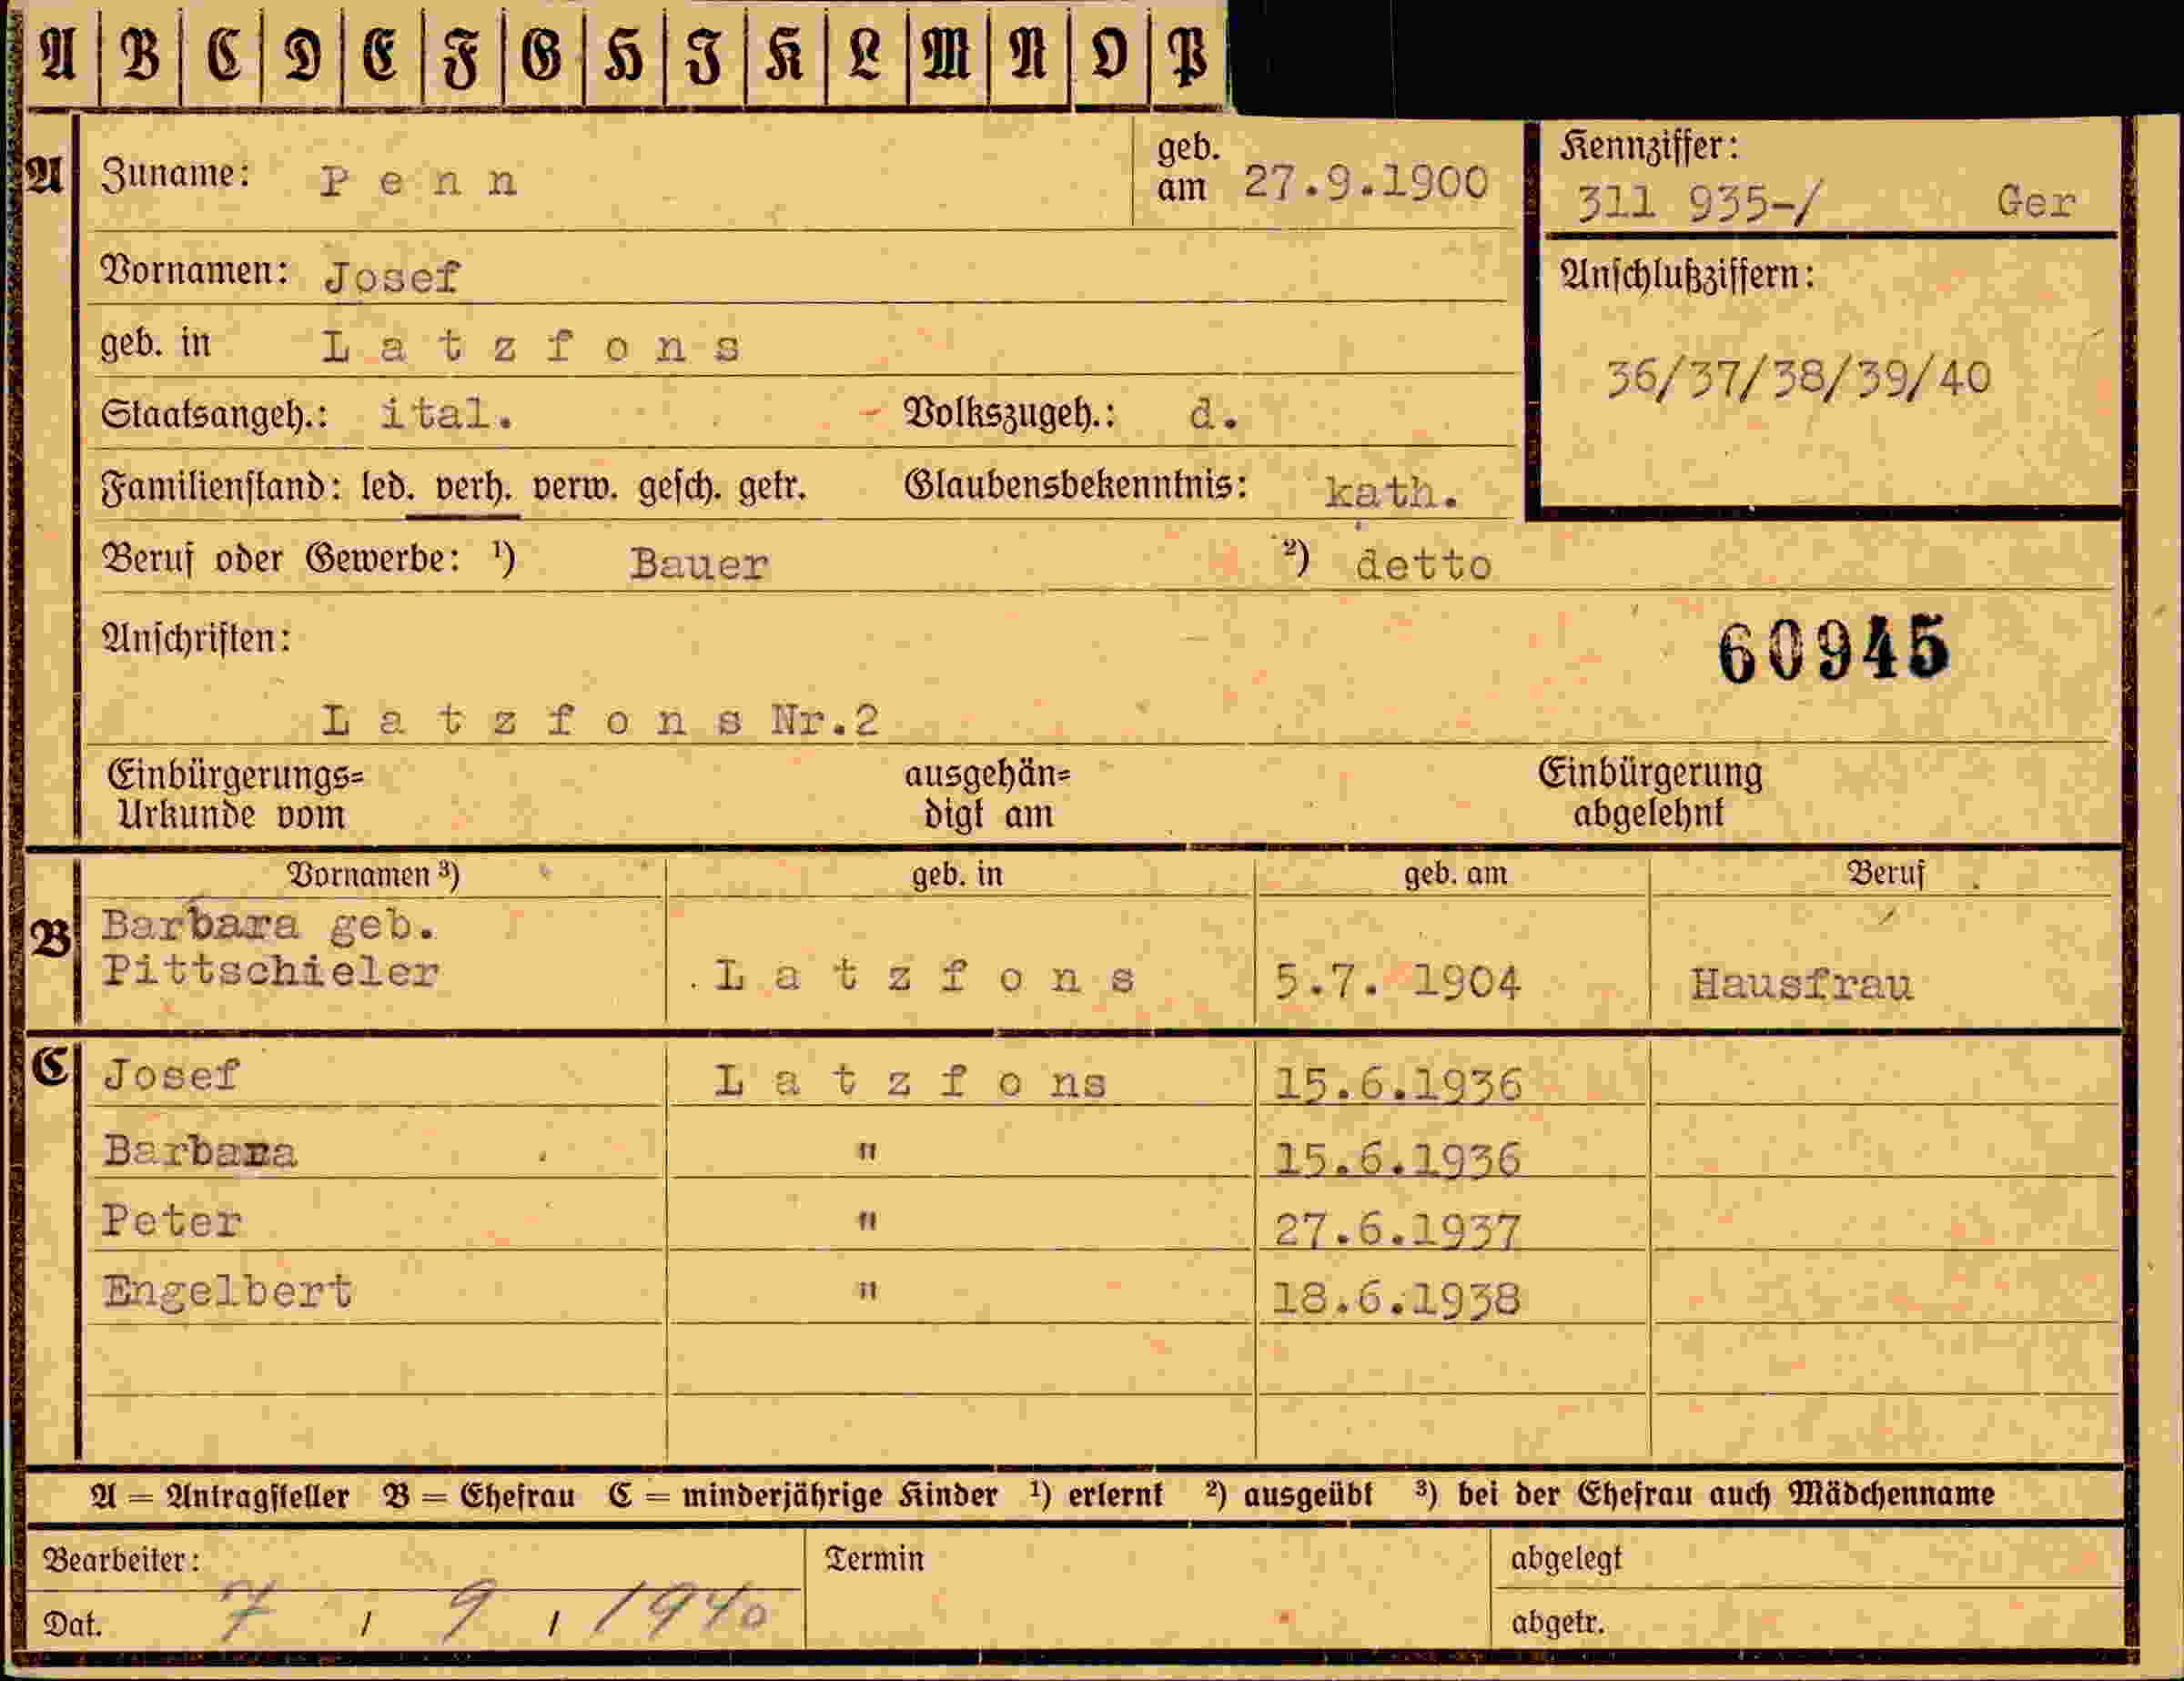 A B C D E F G H I K L M N O P
A Zuname: Penn geb. am 27.9.1900
Kennziffer: 311 935-/ Ger
Vornamen: Josef
Anschlußziffern:
geb. in Latzfons
36/37/38/39/40
Staatsangeh.: ital. Volkszugeh.: d.
Familienstand: led. verh. verw. gesch. getr. Glaubensbekenntnis: kath.
Beruf oder Gewerbe: ¹) Bauer ²) detto
Anschriften: 60945
Latzfons Nr.2
Einbürgerungs= ausgehän= Einbürgerung
Urkunde vom digt am abgelehnt
Vornamen ³) geb. in geb. am Beruf
B Barbara geb.
Pittschieler Latzfons 5.7. 1904 Hausfrau
C Josef Latzfons 15.6.1936
Barbara " 15.6.1936
Peter " 27.6.1937
Engelbert " 18.6.1938
A = Antragsteller B = Ehefrau C = minderjährige Kinder ¹) erlernt ²) ausgeübt ³) bei der Ehefrau auch Mädchenname
Bearbeiter: Termin abgelegt
Dat. 7 / 9 / 1940 abgetr.